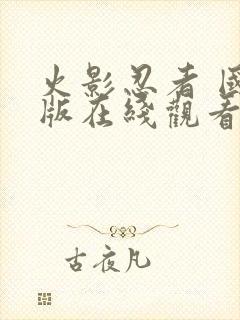 火影忍者 國
版在綫觀看
古夜凡